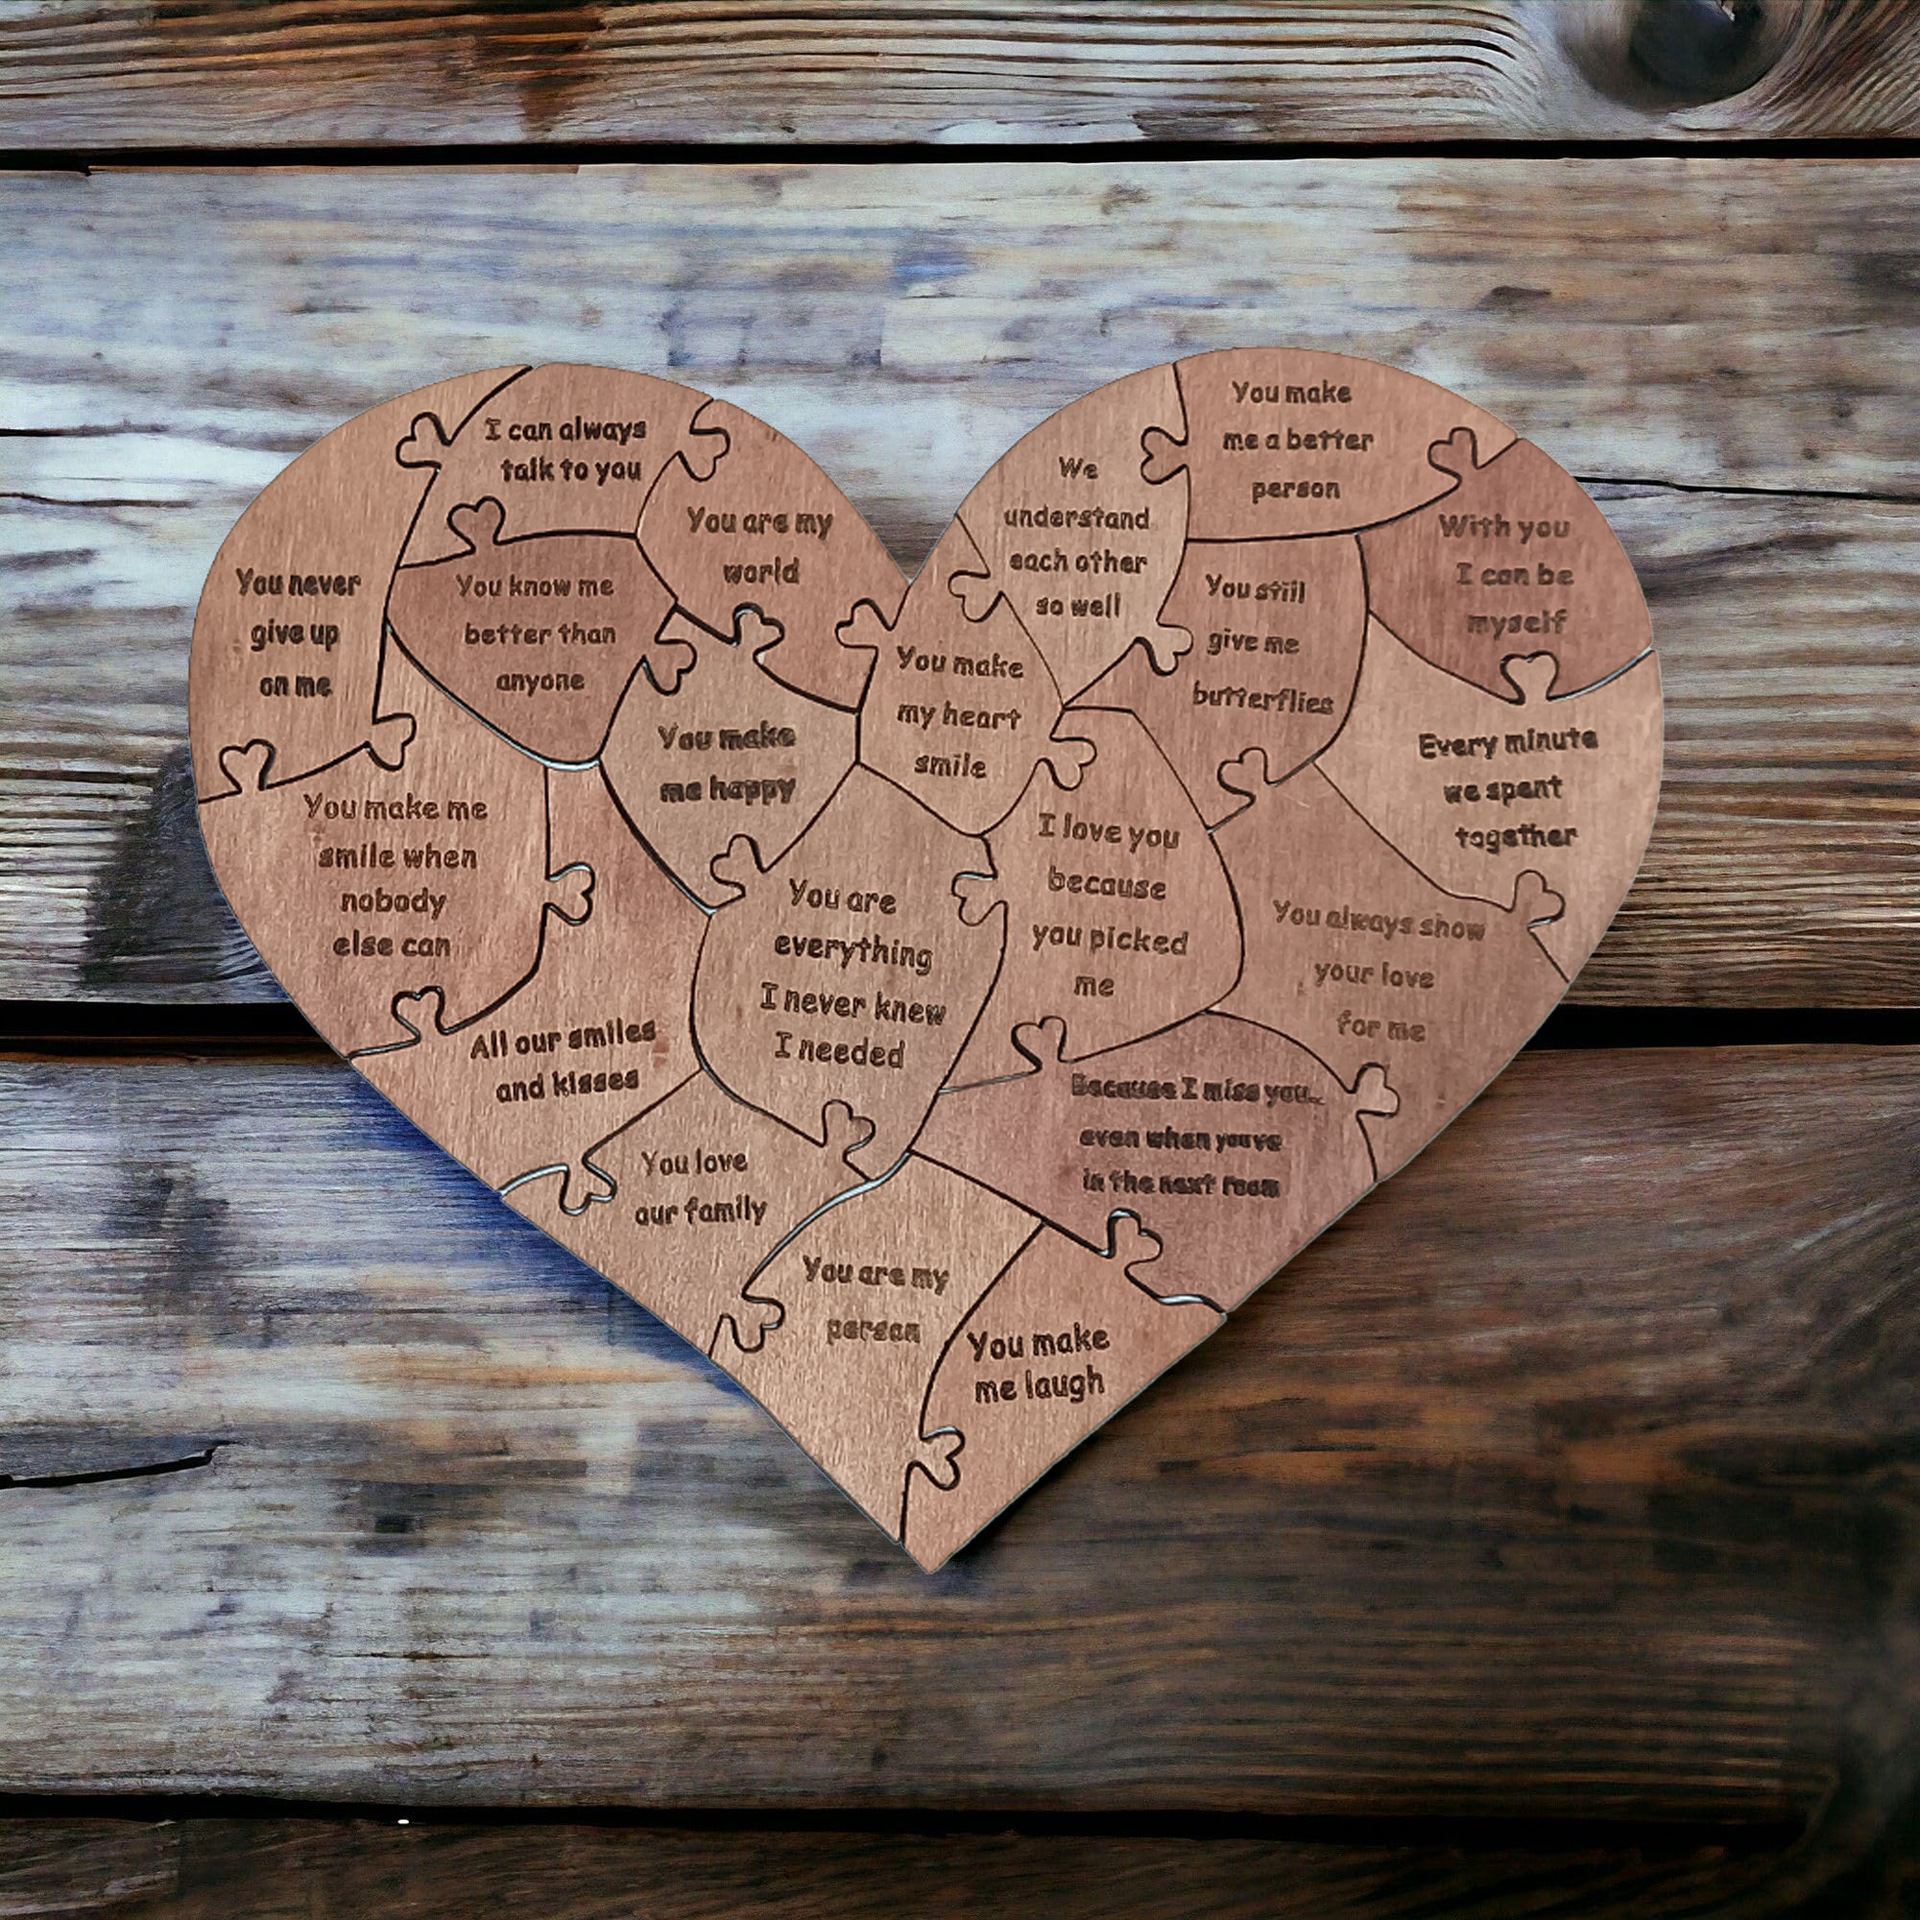 I can always
talk to you
You never
give up
on me
You know me
better than
anyone
You are my
world
You make
me happy
You make
my heart
smile
We
understand
each other
so well
You make
me a better
person
With you
I can be
myself
You still
give me
butterflies
Every minute
we spent
together
You make me
smile when
nobody
else can
All our smiles
and kisses
You are
everything
I never knew
I needed
I love you
because
you picked
me
You always show
your love
for me
Because I miss you...
even when youve
in the next room
You love
our family
You are my
person
You make
me laugh